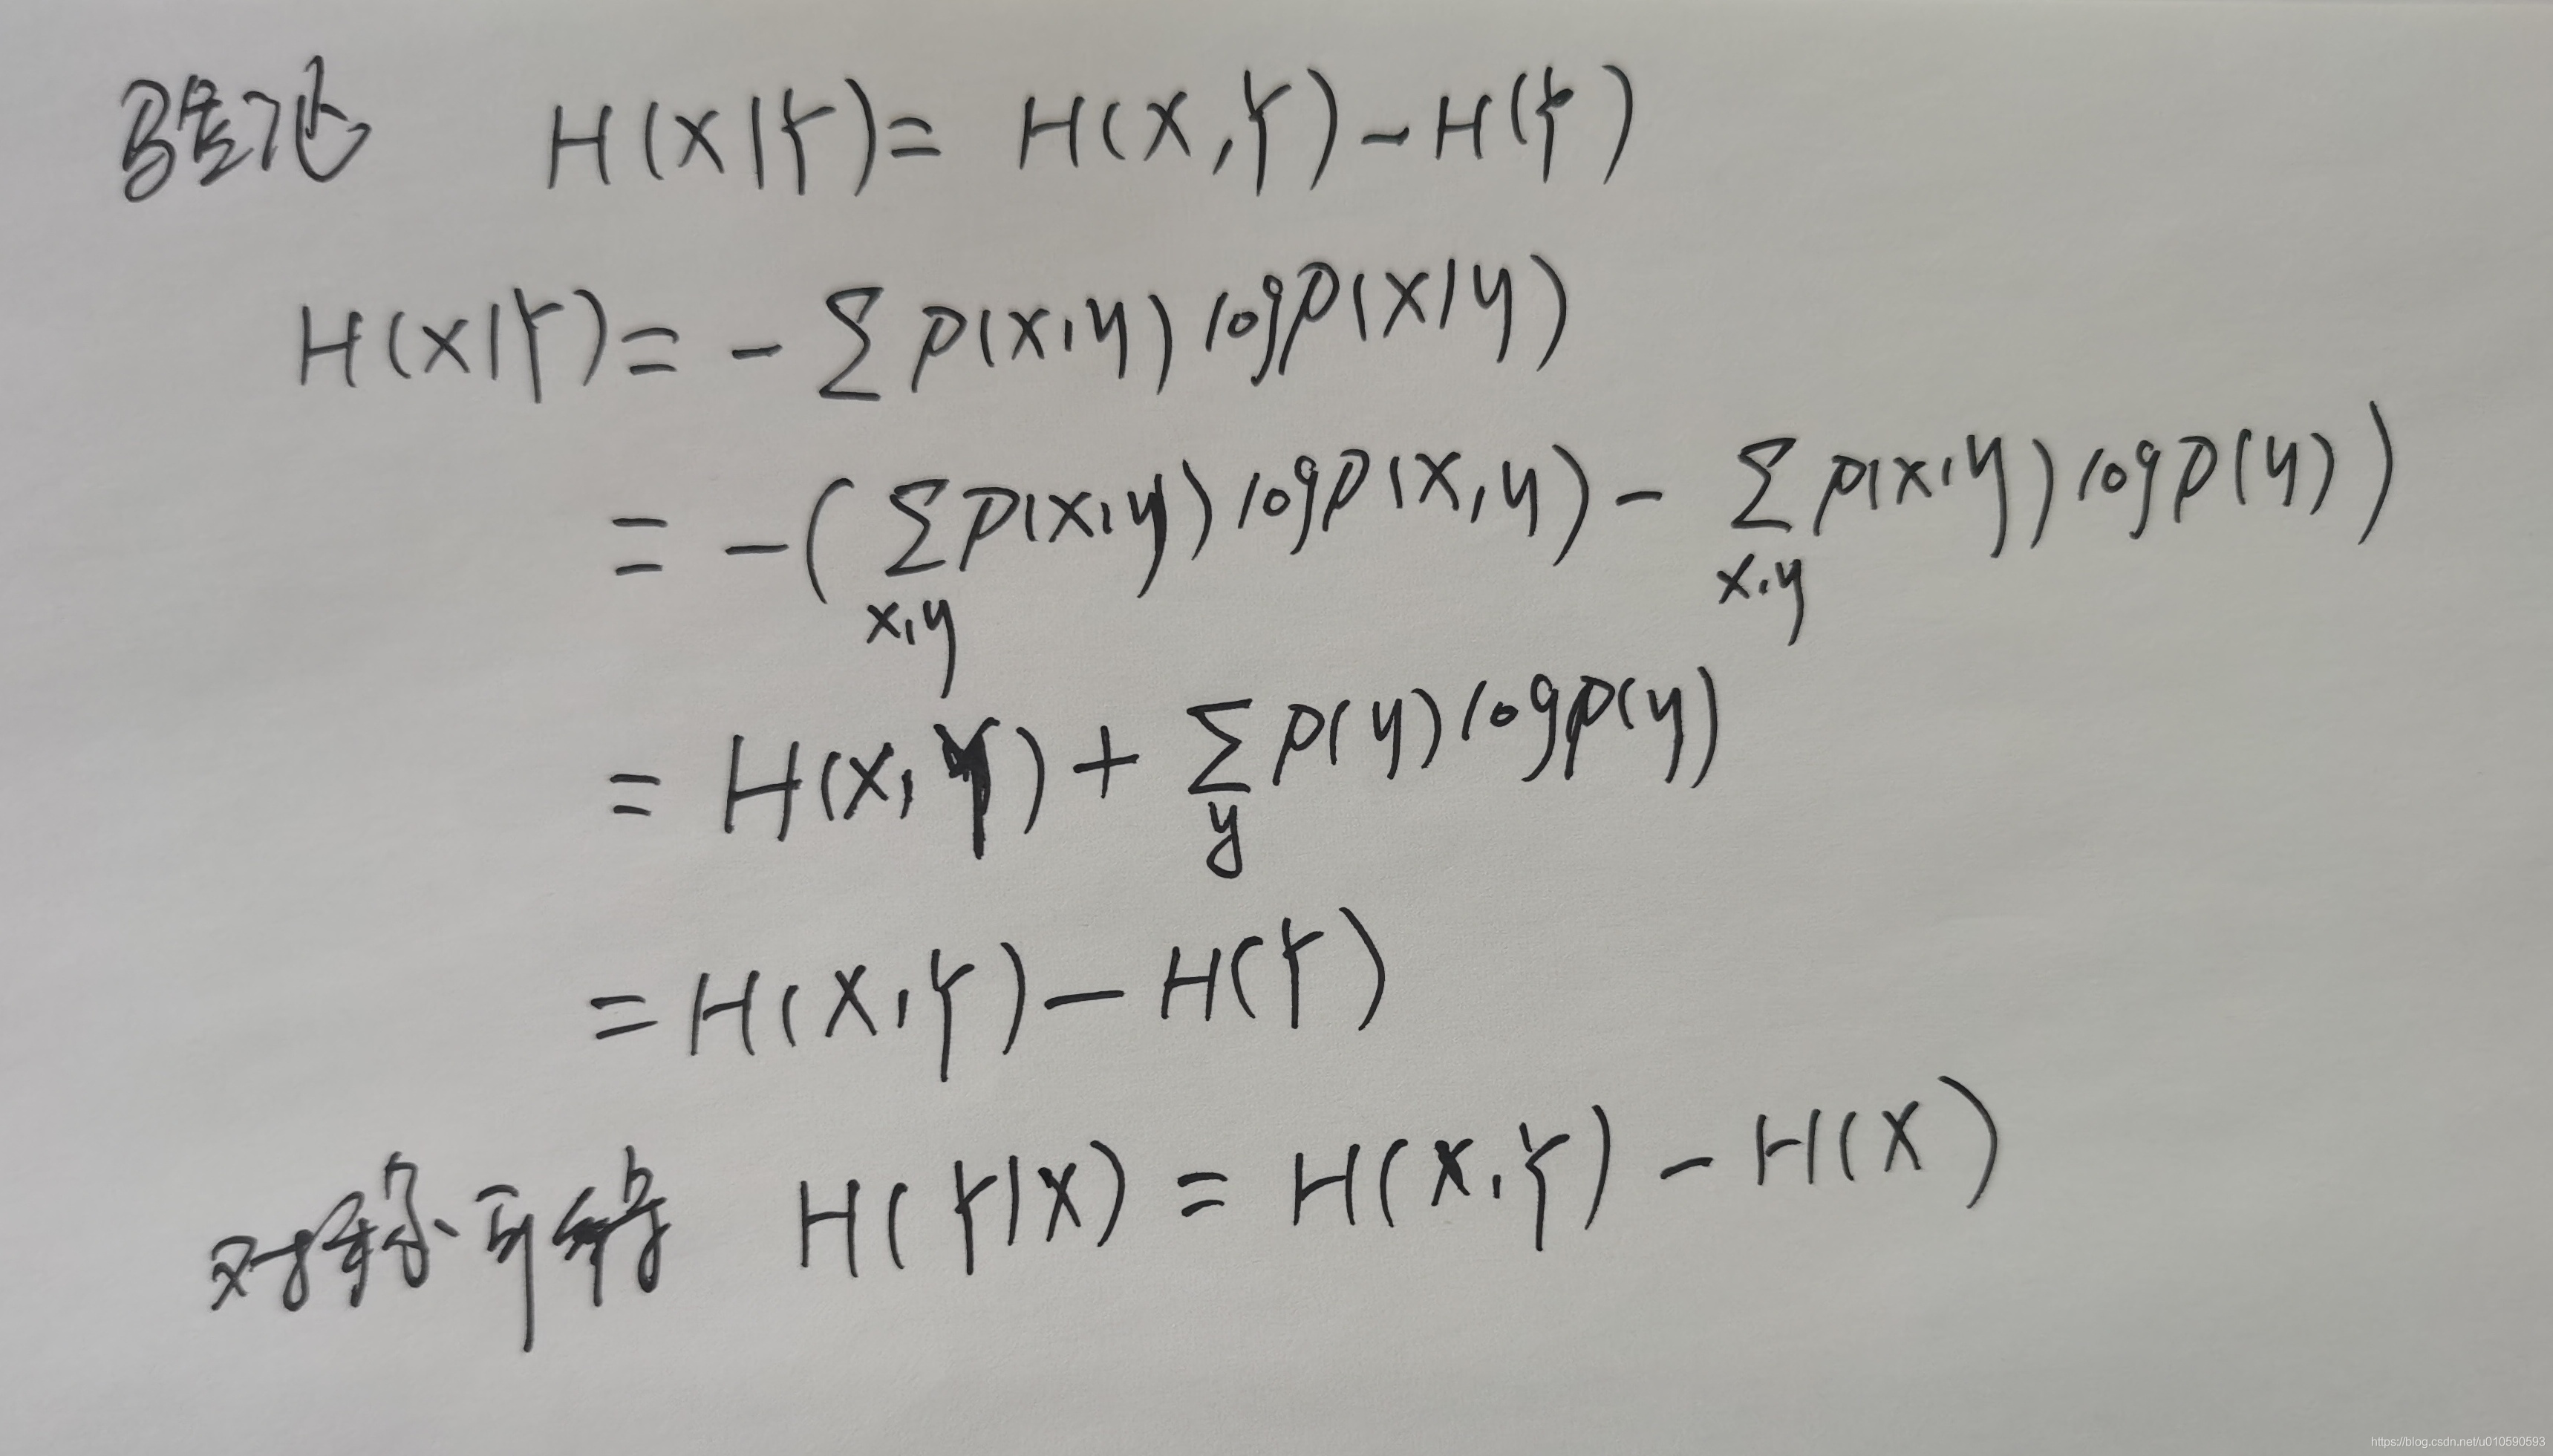 验证 H(X|Y)= H(X,Y)-H(Y)
H(X|Y)= -∑p(x,y)logp(x|y)
= -(∑p(x,y)logp(x,y)- ∑p(x,y)logp(y))
x,y x,y
= H(X,Y)+∑p(y)logp(y)
y
=H(X,Y)-H(Y)
对称可得 H(Y|X)=H(X,Y)-H(X)
https://blog.csdn.net/u010590593